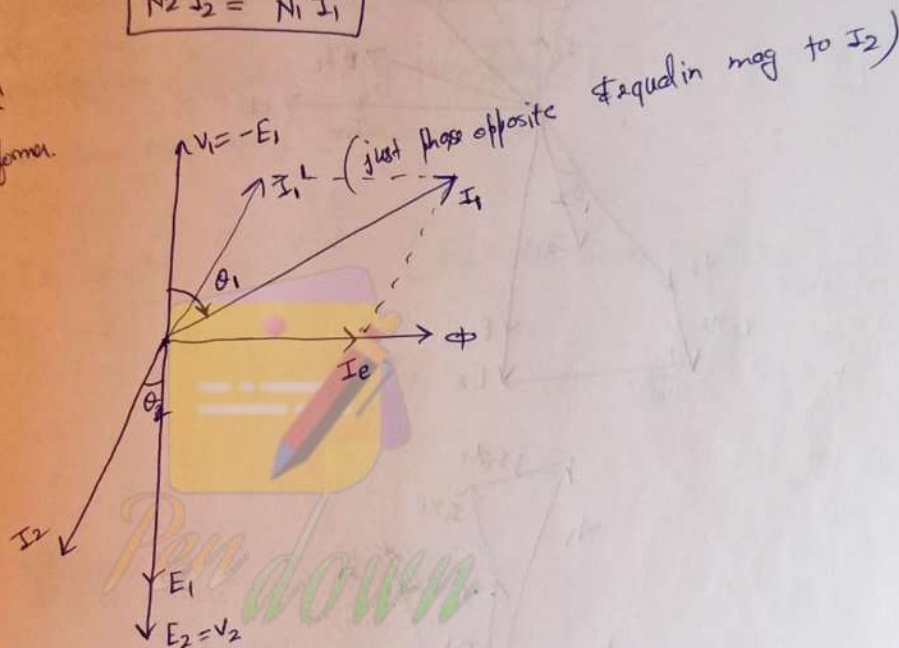 N2 I2 = N1 I1
former.
V1 = -E1
I1^L (just phase opposite & equal in mag to I2)
I1
θ1
Φ
Ie
θ2
I2
E1
E2 = V2
Pen down